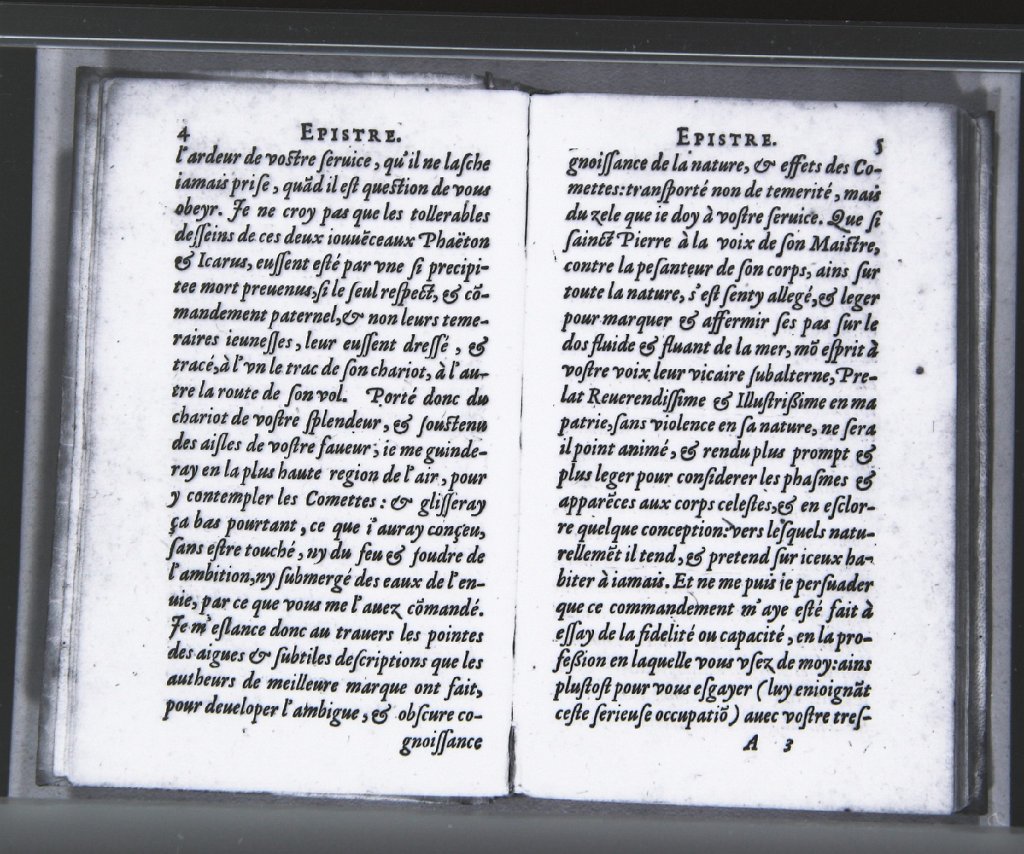 4 EPISTRE.
l'ardeur de vostre seruice, qu'il ne lasche
iamais prise, quãd il est question de vous
obeyr. Je ne croy pas que les tollerables
desseins de ces deux iouuẽceaux Phaëton
& Icarus, eussent esté par vne si precipi-
tee mort preuenus, si le seul respect, & cõ-
mandement paternel, & non leurs teme-
raires ieunesses, leur eussent dressé, &
tracé, à l'vn le trac de son chariot, à l'au-
tre la route de son vol. Porté donc du
chariot de vostre splendeur, & soustenu
des aisles de vostre faueur, ie me guinde-
ray en la plus haute region de l'air, pour
y contempler les Comettes: & glisseray
ça bas pourtant, ce que i'auray conçeu,
sans estre touché, ny du feu & foudre de
l'ambition, ny submergé des eaux de l'en-
uie, par ce que vous me l'auez cõmandé.
Je m'eslance donc au trauers les pointes
des aigues & subtiles descriptions que les
autheurs de meilleure marque ont fait,
pour deueloper l'ambigue, & obscure co-
gnoissance
EPISTRE. 5
gnoissance de la nature, & effets des Co-
mettes: transporté non de temerité, mais
du zele que ie doy à vostre seruice. Que si
sainct Pierre à la voix de son Maistre,
contre la pesanteur de son corps, ains sur
toute la nature, s'est senty allegé, & leger
pour marquer & affermir ses pas sur le
dos fluide & fluant de la mer, mõ esprit à
vostre voix leur vicaire subalterne, Pre-
lat Reuerendissime & Illustrißime en ma
patrie, sans violence en sa nature, ne sera
il point animé, & rendu plus prompt &
plus leger pour considerer les phasmes &
apparẽces aux corps celestes, & en esclor-
re quelque conception: vers lesquels natu-
rellemẽt il tend, & pretend sur iceux ha-
biter à iamais. Et ne me puis ie persuader
que ce commandement m'aye esté fait à
essay de la fidelité ou capacité, en la pro-
feßion en laquelle vous vsez de moy: ains
plustost pour vous esgayer (luy enioignãt
ceste serieuse occupatiõ) auec vostre tres-
A 3